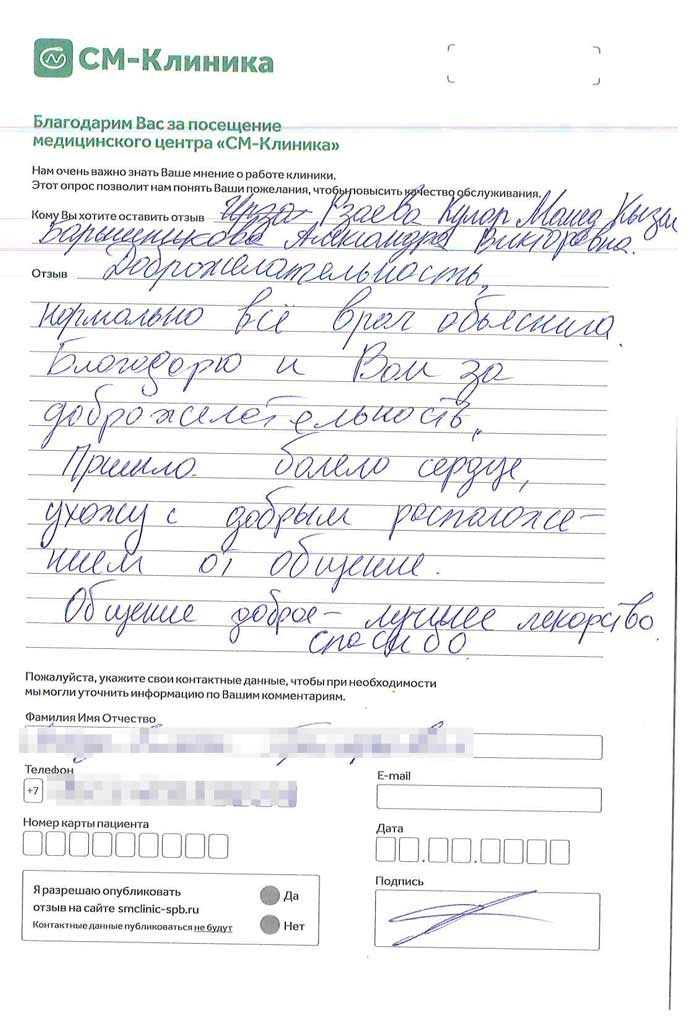 СМ-Клиника
Благодарим Вас за посещение
медицинского центра «СМ-Клиника»
Нам очень важно знать Ваше мнение о работе клиники.
Этот опрос позволит нам понять Ваши пожелания, чтобы повысить качество обслуживания.
Кому Вы хотите оставить отзыв Рзаева Кулар Мамед Кызы
Барышникова Александра Викторовна.
Отзыв Доброжелательность,
нормально всё врач объяснила.
Благодарю и Вам за
доброжелательность.
Пришла болело сердце,
ухожу с добрым расположе-
нием от общение.
Общение доброе - лучшее лекарство
спасибо
Пожалуйста, укажите свои контактные данные, чтобы при необходимости
мы могли уточнить информацию по Вашим комментариям.
Фамилия Имя Отчество
Телефон
E-mail
+7
Номер карты пациента
Дата
Я разрешаю опубликовать
отзыв на сайте smclinic-spb.ru
Контактные данные публиковаться не будут
Да
Нет
Подпись